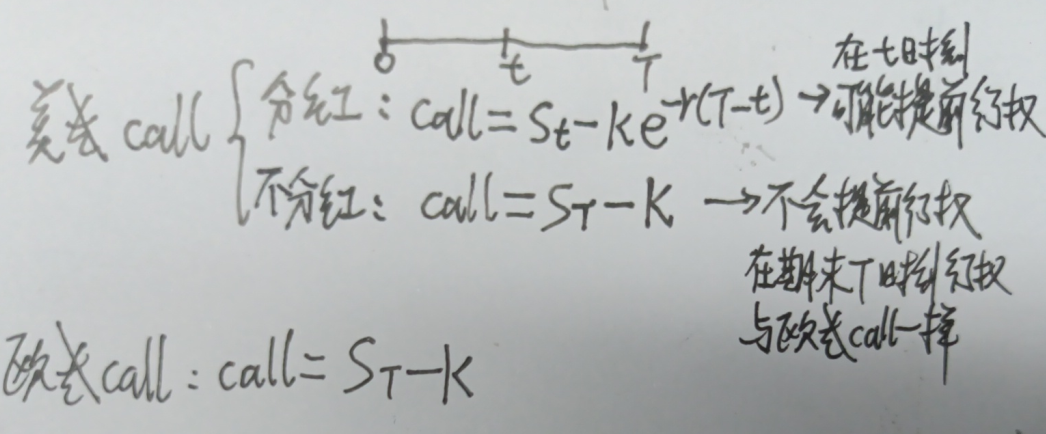 0 t T
美式 call { 分红: call = St - ke^-r(T-t) → 在t时刻
可能提前行权
不分红: call = ST - K → 不会提前行权
在期末T时刻行权
与欧式call一样
欧式call: call = ST - K